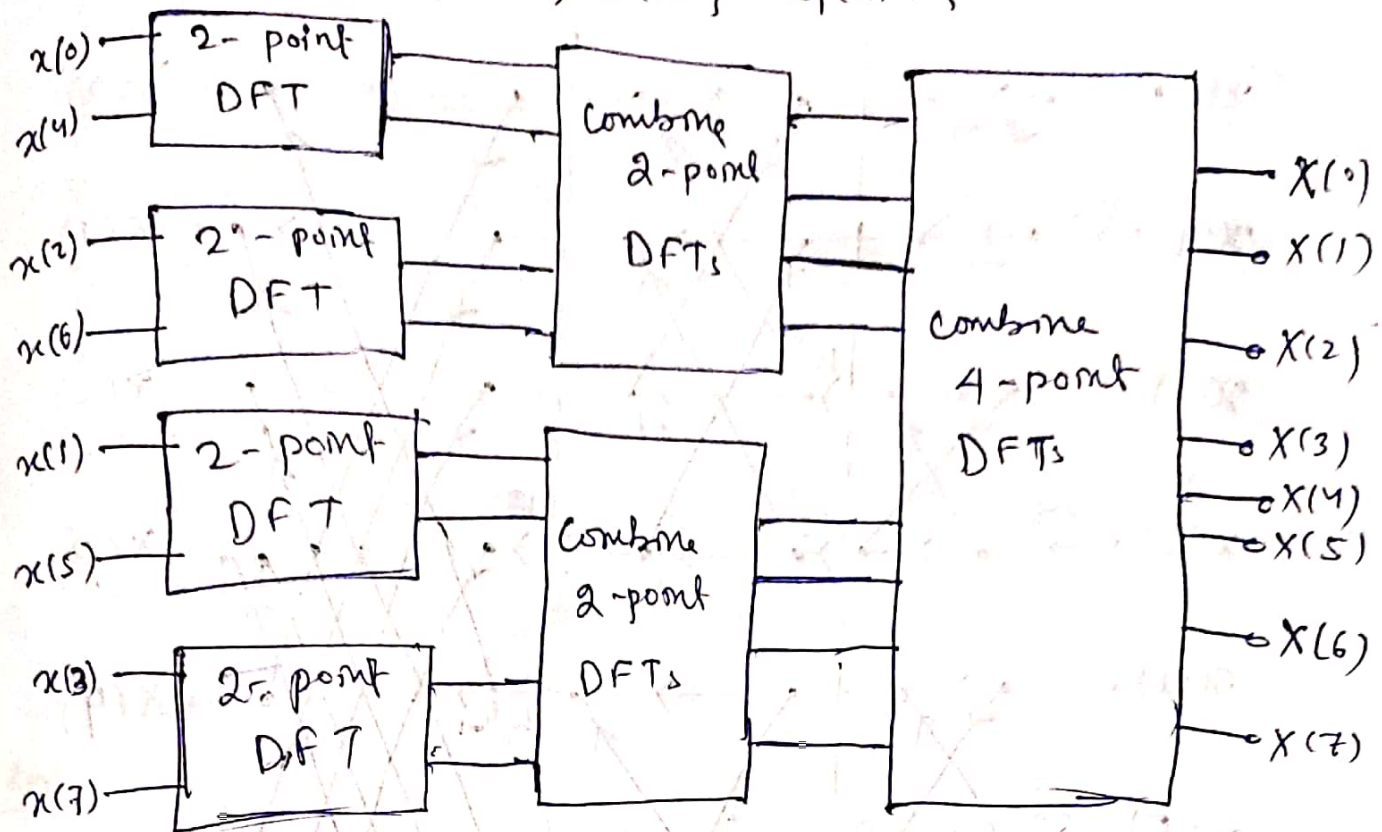 x(0)
x(4)
2-point
DFT
x(2)
x(6)
2-point
DFT
x(1)
x(5)
2-point
DFT
x(3)
x(7)
2-point
DFT
Combine
2-point
DFTs
Combine
2-point
DFTs
Combine
4-point
DFTs
X(0)
X(1)
X(2)
X(3)
X(4)
X(5)
X(6)
X(7)